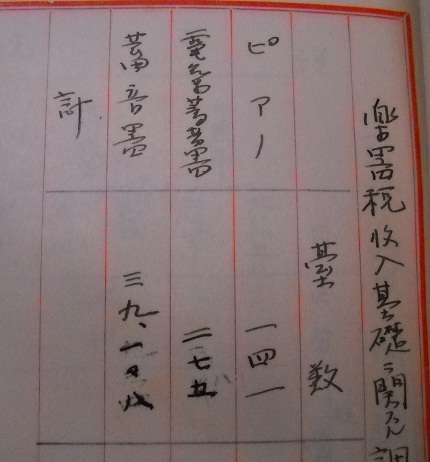 楽器税収入基礎ニ関スル調
臺数
ピアノ 一四一
電気蓄音器 二七五
蓄音器 三九、一〇八
計